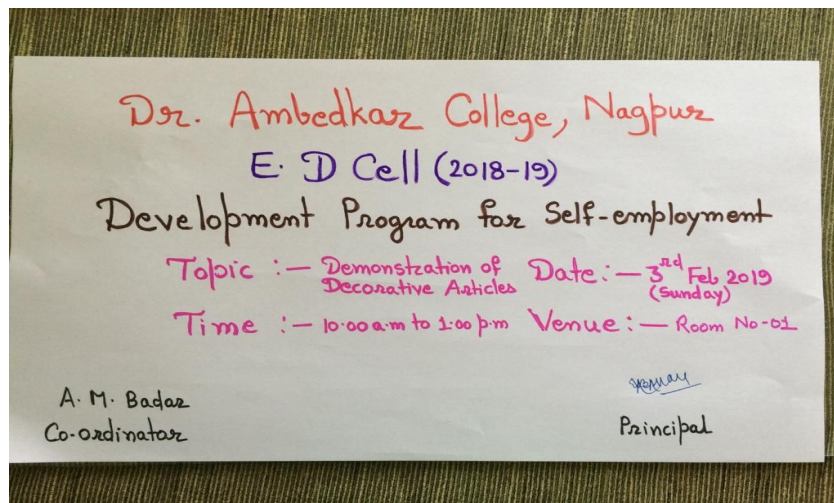 Dr. Ambedkar College, Nagpur
E. D Cell (2018-19)
Development Program for Self-employment
Topic :- Demonstration of Decorative Articles
Date:- 3rd Feb 2019 (Sunday)
Time :- 10.00 a.m to 1.00 p.m
Venue :- Room No-01
A. M. Badar
Co-ordinator
Principal